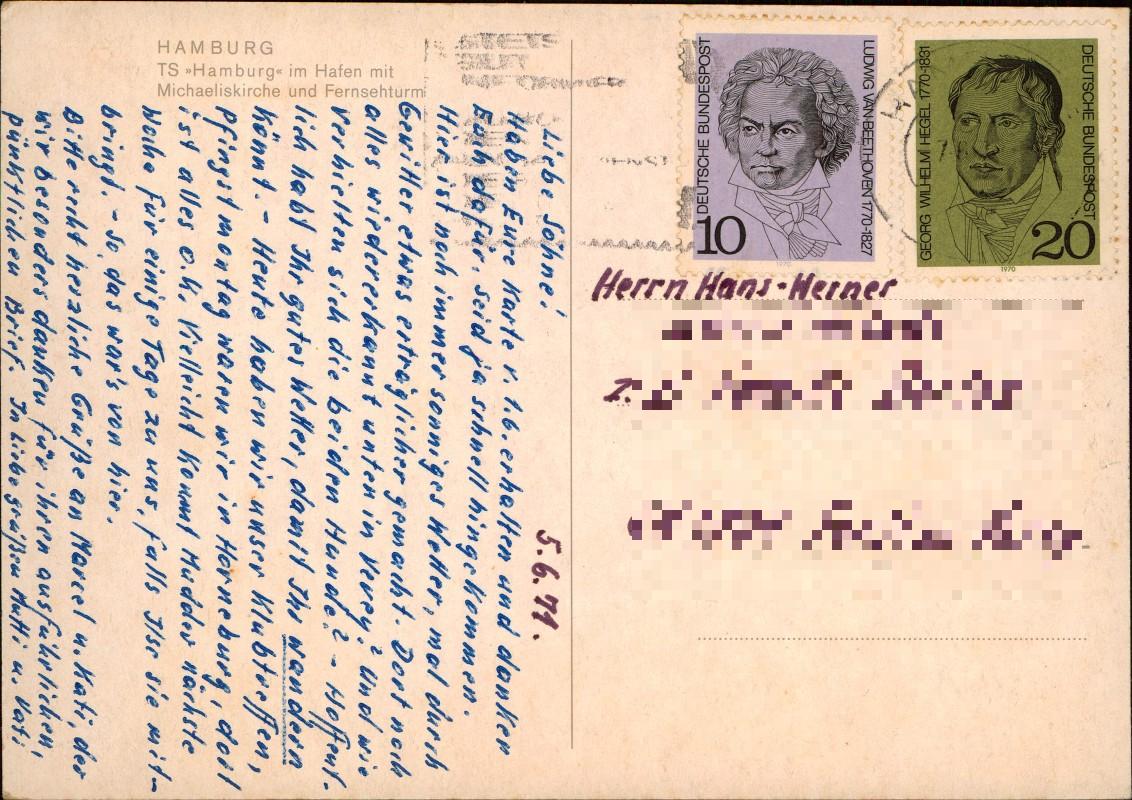 HAMBURG
TS »Hamburg« im Hafen mit
Michaeliskirche und Fernsehturm
DEUTSCHE BUNDESPOST
10
LUDWIG VAN BEETHOVEN 1770-1827
1970
GEORG WILHELM HEGEL 1770-1831
DEUTSCHE BUNDESPOST
20
1970
Herrn Hans-Werner
5.6.71.
Liebe Söhne!
Haben Eure Karte v. 1.6. erhalten und danken
Euch dafür, seid ja schnell hingekommen.
Hier ist noch immer sonniges Wetter, mal durch
Gewitter etwas erträglicher gemacht. Dort noch
alles wiedererkannt unten in Vevey? Und wie
verhielten sich die beiden Hunde? - Hoffent-
lich habt Ihr gutes Wetter, damit Ihr wandern
könnt. - Heute haben wir unser Klubtreffen,
Pfingstmontag waren wir in Horneburg, dort
ist alles o.k. Vielleicht kommt Mudder nächste
Woche für einige Tage zu uns, falls Ilse sie mit-
bringt. - So, das war's von hier.
Bitte recht herzliche Grüße an Marcel u. Kati, der
wir besonders danken für ihren ausführlichen,
pünktlichen Brief. In Liebe grüßen Mutti u. Vati,